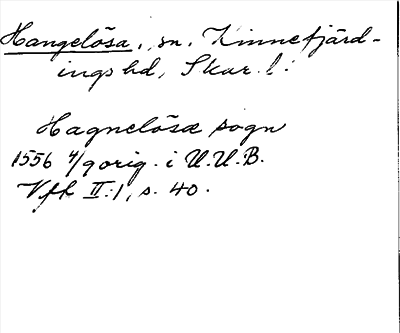 Hangelösa, sn, Kinnefjärd-
ings hd, Skar. l.
Hagnelösæ sogn
1556 4/9 orig. i U.U.B.
Vfk II:1, s. 40.